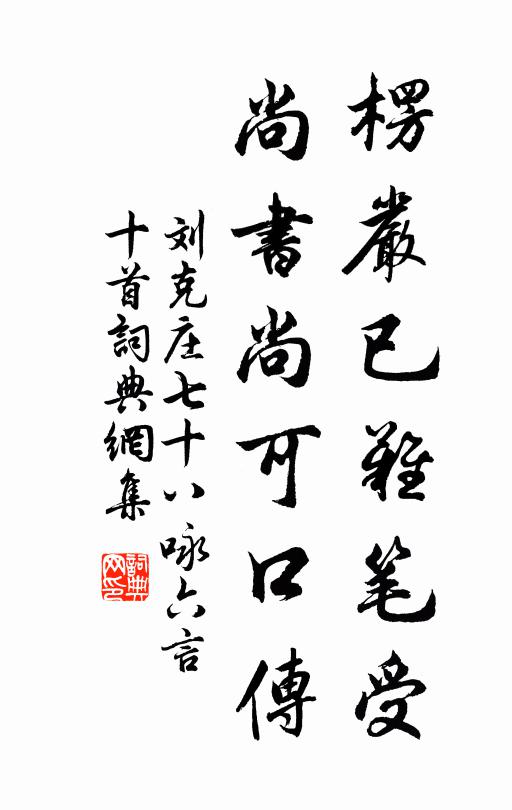 楞嚴已難笔受
尚書尚可口傳
刘克庄七十八咏六言
十首詞典網集
詞典
网印